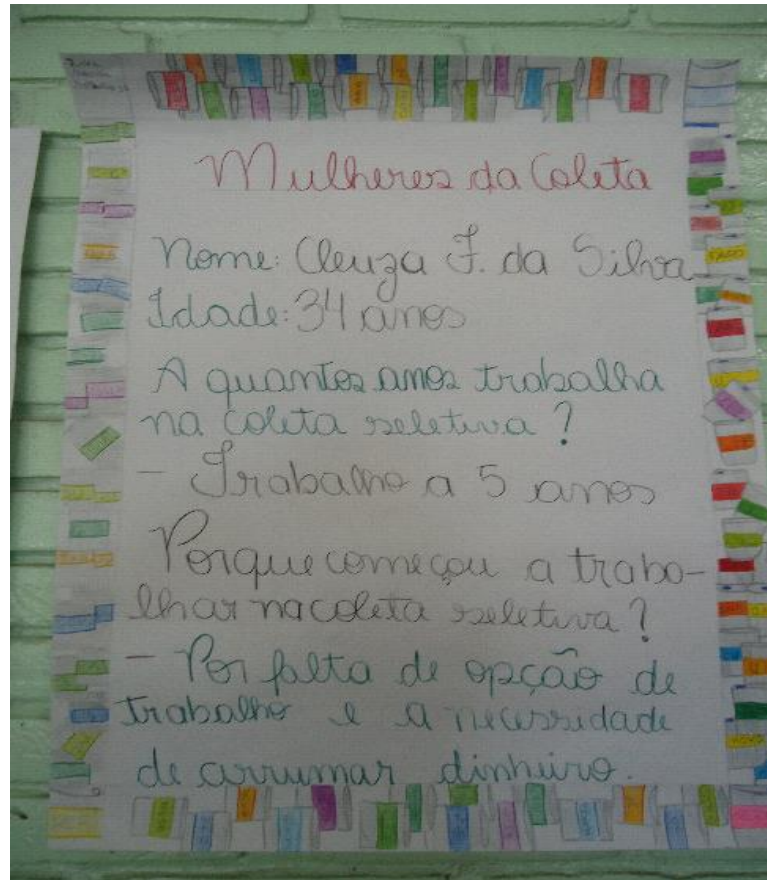 Mulheres da Coleta
Nome: Cleuza F. da Silva
Idade: 34 anos
A quantos anos trabalha
na coleta seletiva?
- Trabalho a 5 anos
Porque começou a traba-
lhar na coleta seletiva?
- Por falta de opção de
trabalho e a necessidade
de arrumar dinheiro.